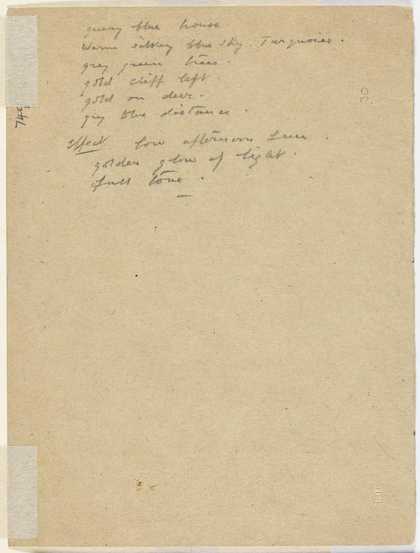 blue house
Warm silvery blue sky. Turquoise.
grey green trees.
gold cliff left.
gold on deer.
grey blue distance.
Effect low afternoon sun.
golden glow of light.
full tone.